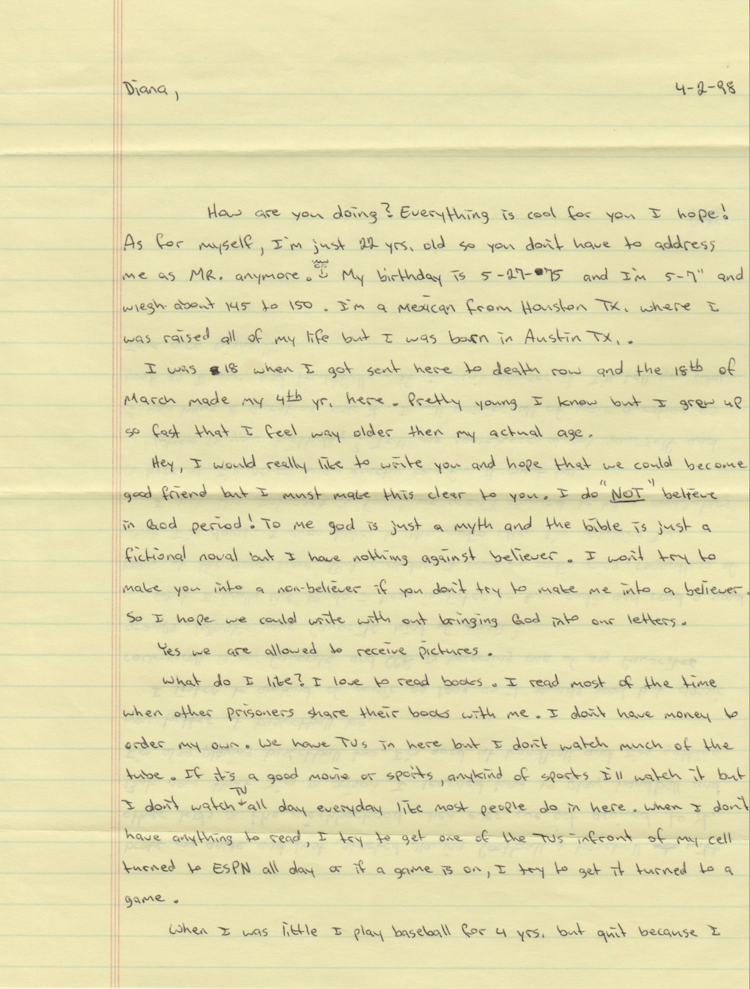 Diana, 4-2-98
How are you doing? Everything is cool for you I hope!
As for myself, I'm just 22 yrs. old so you don't have to address
me as MR. anymore. My birthday is 5-27-75 and I'm 5-7" and
wiegh about 145 to 150. I'm a Mexican from Houston TX, where I
was raised all of my life but I was born in Austin TX,.
I was 18 when I got sent here to death row and the 18th of
March made my 4th yr. here. Pretty young I know but I grew up
so fast that I feel way older then my actual age.
Hey, I would really like to write you and hope that we could become
good friend but I must make this clear to you. I do "NOT" believe
in God period! To me god is just a myth and the bible is just a
fictional noval but I have nothing against believer. I won't try to
make you into a non-believer if you don't try to make me into a believer.
So I hope we could write with out bringing God into our letters.
Yes we are allowed to receive pictures.
What do I like? I love to read books. I read most of the time
when other prisoners share their books with me. I don't have money to
order my own. We have TVs in here but I don't watch much of the
tube. If it's a good movie or sports, anykind of sports I'll watch it but
I don't watch TV all day everyday like most people do in here. When I don't
have anything to read, I try to get one of the TVs infront of my cell
turned to ESPN all day or if a game is on, I try to get it turned to a
game.
When I was little I play baseball for 4 yrs. but quit because I